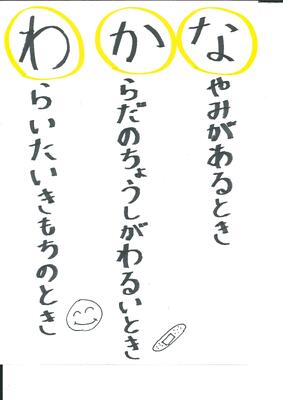 なやみがあるとき
からだのちょうしがわるいとき
わらいたいきもちのとき